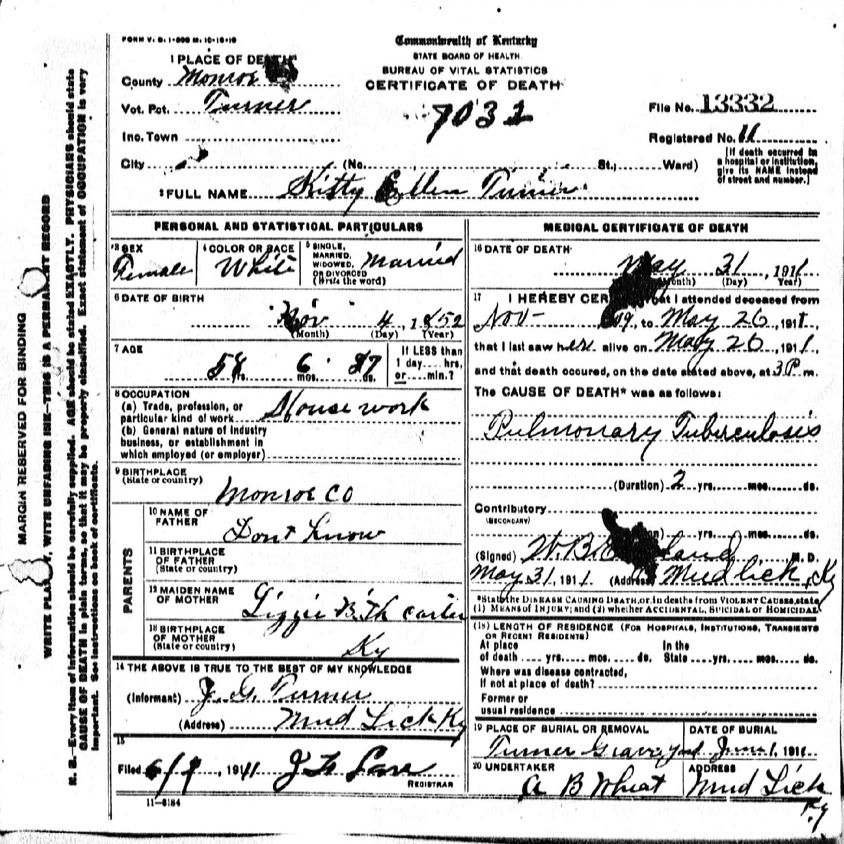 FORM V. S. 1-
Commonwealth of Kentucky
STATE BOARD OF HEALTH
BUREAU OF VITAL STATISTICS
CERTIFICATE OF DEATH
1 PLACE OF DEATH
County Monroe
Vot. Pct. Turner
Inc. Town
City (No. St., Ward)
7032
File No. 13332
Registered No. 11
[If death occurred in a hospital or institution, give its NAME instead of street and number.]
2 FULL NAME Kitty Ellen Turner
PERSONAL AND STATISTICAL PARTICULARS
3 SEX Female
4 COLOR OR RACE White
5 SINGLE, MARRIED, WIDOWED, OR DIVORCED (Write the word) Married
6 DATE OF BIRTH
Nov 4, 1852
(Month) (Day) (Year)
7 AGE
58 yrs. 6 mos. 27 ds.
If LESS than 1 day.... hrs. or.... min.?
8 OCCUPATION
(a) Trade, profession, or particular kind of work House work
(b) General nature of industry business, or establishment in which employed (or employer)
9 BIRTHPLACE
(State or country)
Monroe Co
PARENTS
10 NAME OF FATHER Dont Know
11 BIRTHPLACE OF FATHER (State or country)
12 MAIDEN NAME OF MOTHER Lizzie Carter
13 BIRTHPLACE OF MOTHER (State or country) Ky
14 THE ABOVE IS TRUE TO THE BEST OF MY KNOWLEDGE
(Informant) J. G. Turner
(Address) Mud Lick Ky
15
Filed 1911
REGISTRAR
11-5184
MEDICAL CERTIFICATE OF DEATH
16 DATE OF DEATH
May 31, 1911
(Month) (Day) (Year)
17 I HEREBY that I attended deceased from
Nov- to May 26, 1911,
that I last saw her alive on May 26, 1911,
and that death occured, on the date stated above, at 3 P m.
The CAUSE OF DEATH* was as follows:
Pulmonary Tuberculosis
(Duration) 2 yrs. mos. ds.
Contributory
(SECONDARY)
yrs. mos. ds.
(Signed) W. B. M. D.
May 31, 1911 Mud Lick, Ky
*State the DISEASE CAUSING DEATH, or, in deaths from VIOLENT CAUSES, state (1) MEANS OF INJURY; and (2) whether ACCIDENTAL, SUICIDAL or HOMICIDAL
(18) LENGTH OF RESIDENCE (FOR HOSPITALS, INSTITUTIONS, TRANSIENTS OR RECENT RESIDENTS)
At place of death.... yrs..... mos..... ds. In the State.... yrs..... mos..... ds.
Where was disease contracted, If not at place of death?
Former or usual residence
19 PLACE OF BURIAL OR REMOVAL
Turner Grave yard
DATE OF BURIAL
June 1, 1911
20 UNDERTAKER
A B Wheat
ADDRESS
Mud Lick Ky
MARGIN RESERVED FOR BINDING
WRITE PLAINLY, WITH UNFADING INK—THIS IS A PERMANENT RECORD
N. B.—Every item of information should be carefully supplied. AGE should be stated EXACTLY. PHYSICIANS should state
CAUSE OF DEATH in plain terms so that it may be properly classified. Exact statement of OCCUPATION is very
important. See instructions on back of certificate.